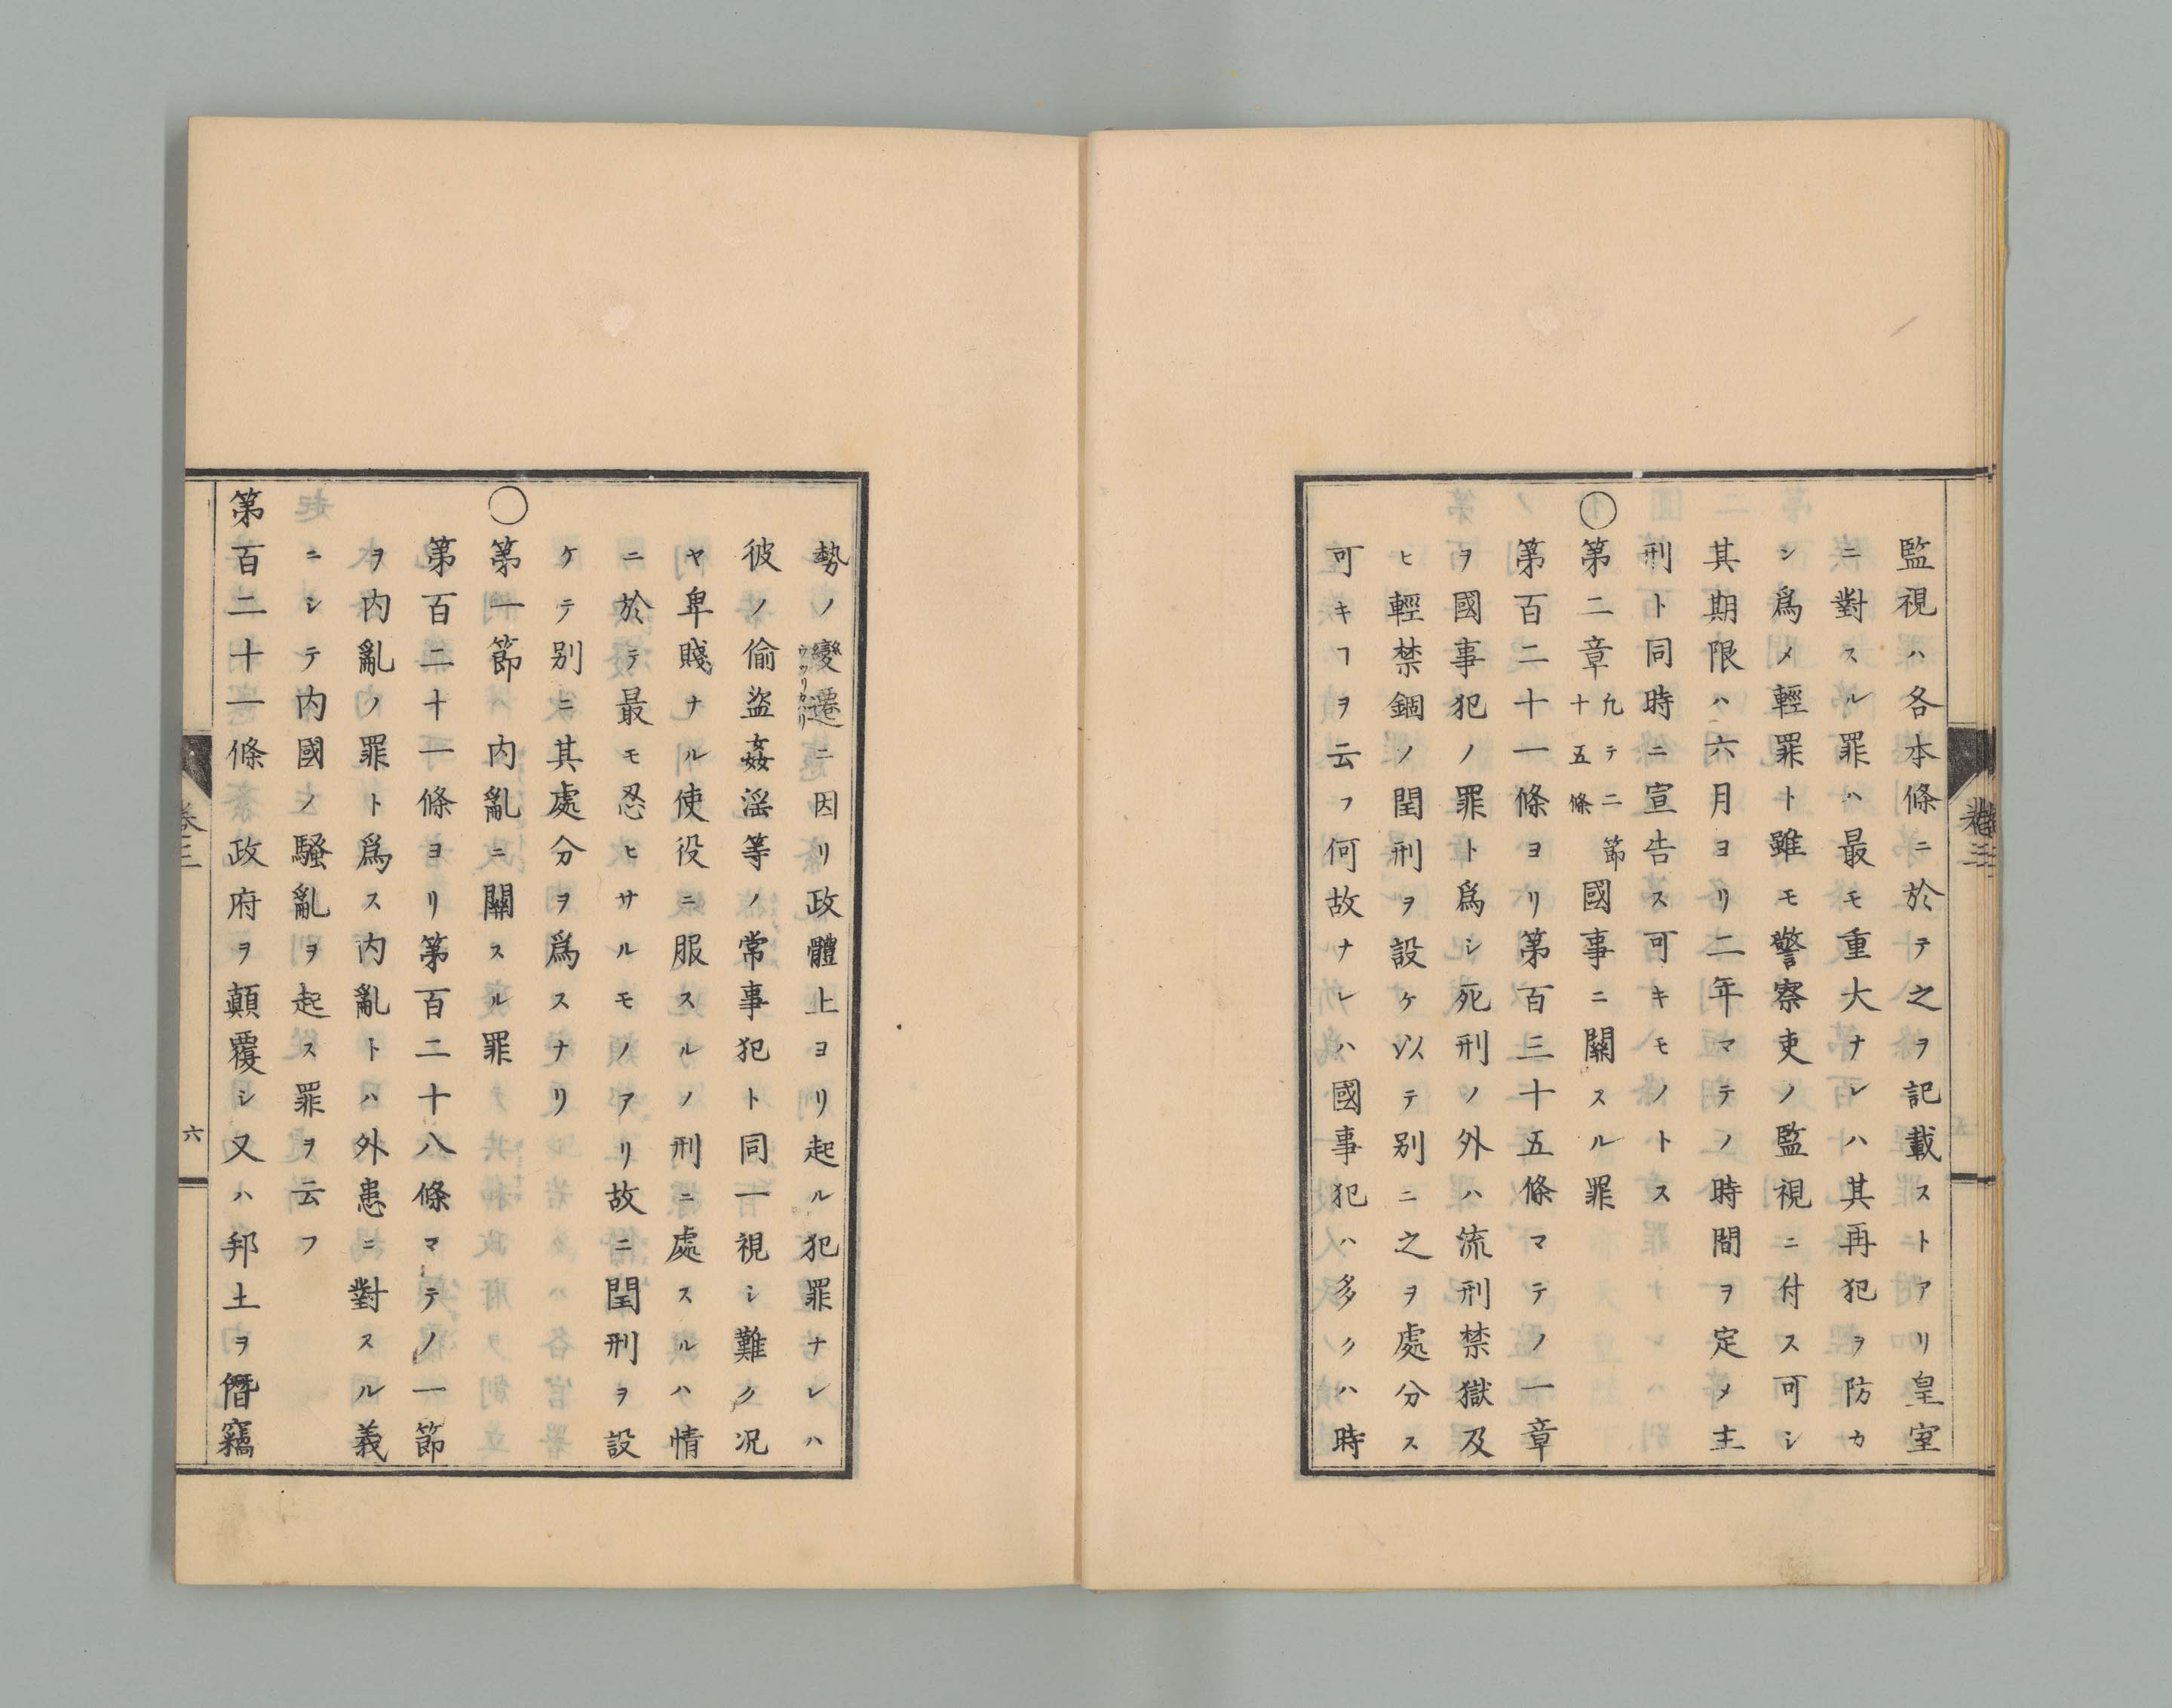 監視ハ各本條ニ於テ之ヲ記載ストアリ皇室
ニ對スル罪ハ最モ重大ナレハ其再犯ヲ防カ
シ爲メ輕罪ト雖モ警察吏ノ監視ニ付ス可シ
其期限ハ六月ヨリ二年マテノ時間ヲ定メ主
刑ト同時ニ宣告ス可キモノトス
○第二章 凢テ二節十五條 國事ニ關スル罪
第百二十一條ヨリ第百三十五條マテノ一章
ヲ國事犯ノ罪ト爲シ死刑ノ外ハ流刑禁獄及
ヒ輕禁錮ノ閏刑ヲ設ケ以テ別ニ之ヲ處分ス
可キヿヲ云フ何故ナレハ國事犯ハ多クハ時
勢ノ變遷ニ因リ政體上ヨリ起ル犯罪ナレハ
ウツリカハリ
彼ノ偷盜姦淫等ノ常事犯ト同一視シ難ク况
ヤ卑賤ナル使役ニ服スルノ刑ニ處スルハ情
ニ於テ最モ忍ヒサルモノアリ故ニ閏刑ヲ設
ケテ别ニ其處分ヲ爲スナリ
○第一節 內亂ニ關スル罪
第百二十一條ヨリ第百二十八條マテノ一節
ヲ內亂ノ罪ト爲ス內亂トハ外患ニ對スル義
ニシテ內國ノ騷亂ヲ起ス罪ヲ云フ
第百二十一條 政府ヲ顛覆シ又ハ邦土ヲ僭竊
卷三
六